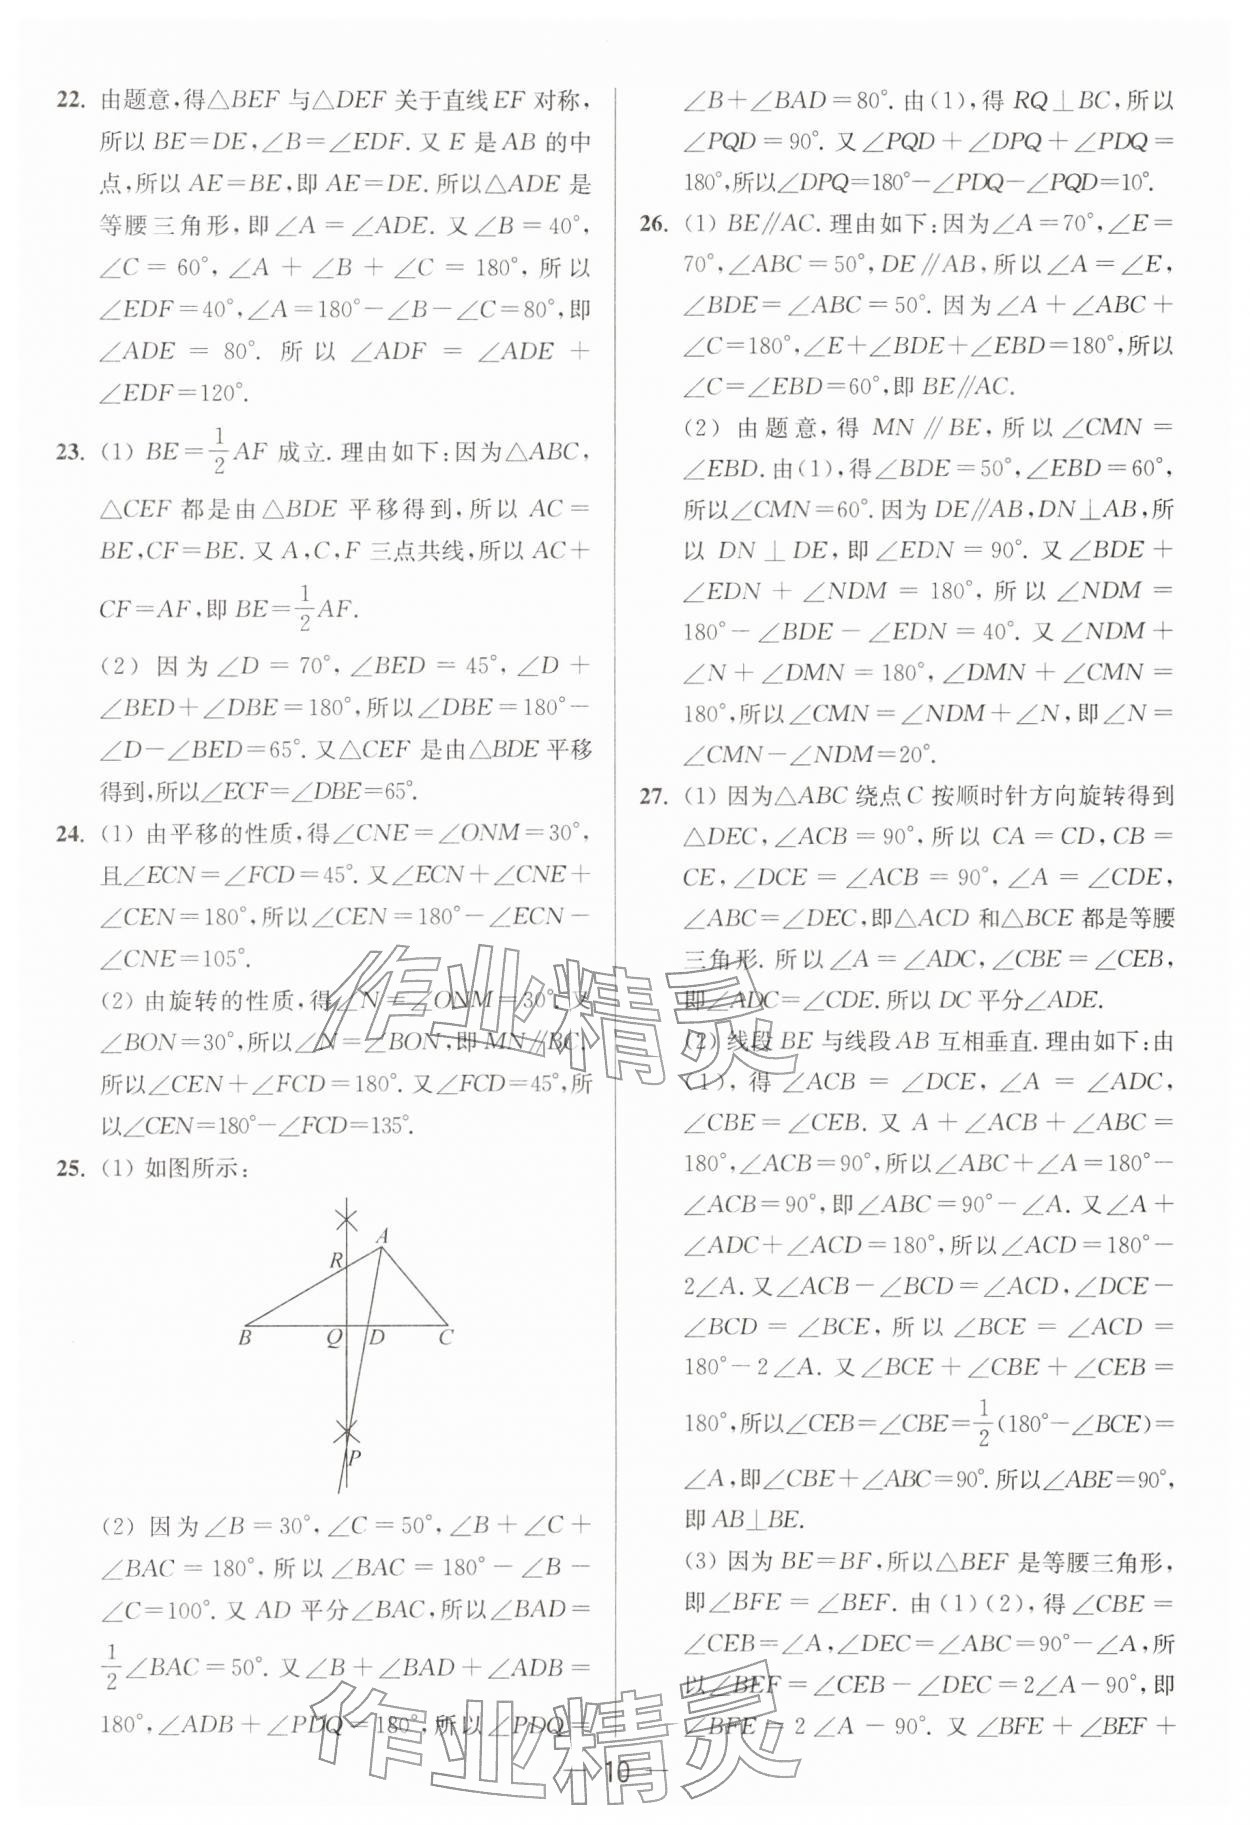 22. 由题意,得△BEF 与△DEF 关于直线EF 对称,
所以 BE=DE,∠B=∠EDF. 又 E 是 AB 的中
点,所以 AE=BE,即 AE=DE. 所以△ADE 是
等腰三角形,即∠A=∠ADE. 又∠B=40°,
∠C=60°,∠A+∠B+∠C=180°,所以
∠EDF=40°,∠A=180°-∠B-∠C=80°,即
∠ADE=80°. 所以∠ADF=∠ADE+
∠EDF=120°.
23. (1) BE=1/2AF 成立. 理由如下:因为△ABC,
△CEF 都是由△BDE 平移得到,所以 AC=
BE,CF=BE. 又 A,C,F 三点共线,所以 AC+
CF=AF,即 BE=1/2AF.
(2) 因为∠D=70°,∠BED=45°,∠D+
∠BED+∠DBE=180°,所以∠DBE=180°-
∠D-∠BED=65°. 又△CEF 是由△BDE 平移
得到,所以∠ECF=∠DBE=65°.
24. (1) 由平移的性质,得∠CNE=∠ONM=30°,
且∠ECN=∠FCD=45°. 又∠ECN+∠CNE+
∠CEN=180°,所以∠CEN=180°-∠ECN-
∠CNE=105°.
(2) 由旋转的性质,得∠N=∠ONM=30°. 又
∠BON=30°,所以∠N=∠BON,即 MN∥BC.
所以∠CEN+∠FCD=180°. 又∠FCD=45°,所
以∠CEN=180°-∠FCD=135°.
25. (1) 如图所示:
A
R
B
Q
D
C
P
(2) 因为∠B=30°,∠C=50°,∠B+∠C+
∠BAC=180°,所以∠BAC=180°-∠B-
∠C=100°. 又 AD 平分∠BAC,所以∠BAD=
1/2∠BAC=50°. 又∠B+∠BAD+∠ADB=
180°,∠ADB+∠PDQ=180°,所以∠PDQ=
∠B+∠BAD=80°. 由(1),得 RQ⊥BC,所以
∠PQD=90°. 又∠PQD+∠DPQ+∠PDQ=
180°,所以∠DPQ=180°-∠PDQ-∠PQD=10°.
26. (1) BE∥AC. 理由如下:因为∠A=70°,∠E=
70°,∠ABC=50°,DE∥AB,所以∠A=∠E,
∠BDE=∠ABC=50°. 因为∠A+∠ABC+
∠C=180°,∠E+∠BDE+∠EBD=180°,所以
∠C=∠EBD=60°,即 BE∥AC.
(2) 由题意,得 MN∥BE,所以∠CMN=
∠EBD. 由(1),得∠BDE=50°,∠EBD=60°,
所以∠CMN=60°. 因为 DE∥AB,DN⊥AB,所
以 DN⊥DE,即∠EDN=90°. 又∠BDE+
∠EDN+∠NDM=180°,所以∠NDM=
180°-∠BDE-∠EDN=40°. 又∠NDM+
∠N+∠DMN=180°,∠DMN+∠CMN=
180°,所以∠CMN=∠NDM+∠N,即∠N=
∠CMN-∠NDM=20°.
27. (1) 因为△ABC 绕点 C 按顺时针方向旋转得到
△DEC,∠ACB=90°,所以 CA=CD,CB=
CE,∠DCE=∠ACB=90°,∠A=∠CDE,
∠ABC=∠DEC,即△ACD 和△BCE 都是等腰
三角形. 所以∠A=∠ADC,∠CBE=∠CEB,
即∠ADC=∠CDE. 所以 DC 平分∠ADE.
(2) 线段 BE 与线段 AB 互相垂直. 理由如下:由
(1),得∠ACB=∠DCE,∠A=∠ADC,
∠CBE=∠CEB. 又 A+∠ACB+∠ABC=
180°,∠ACB=90°,所以∠ABC+∠A=180°-
∠ACB=90°,即∠ABC=90°-∠A. 又∠A+
∠ADC+∠ACD=180°,所以∠ACD=180°-
2∠A. 又∠ACB-∠BCD=∠ACD,∠DCE-
∠BCD=∠BCE,所以∠BCE=∠ACD=
180°-2∠A. 又∠BCE+∠CBE+∠CEB=
180°,所以∠CEB=∠CBE=1/2(180°-∠BCE)=
∠A,即∠CBE+∠ABC=90°. 所以∠ABE=90°,
即 AB⊥BE.
(3) 因为 BE=BF,所以△BEF 是等腰三角形,
即∠BFE=∠BEF. 由(1)(2),得∠CBE=
∠CEB=∠A,∠DEC=∠ABC=90°-∠A,所
以∠BEF=∠CEB-∠DEC=2∠A-90°,即
∠BFE=2∠A-90°. 又∠BFE+∠BEF+
— 10 —
作业精灵
作业精灵